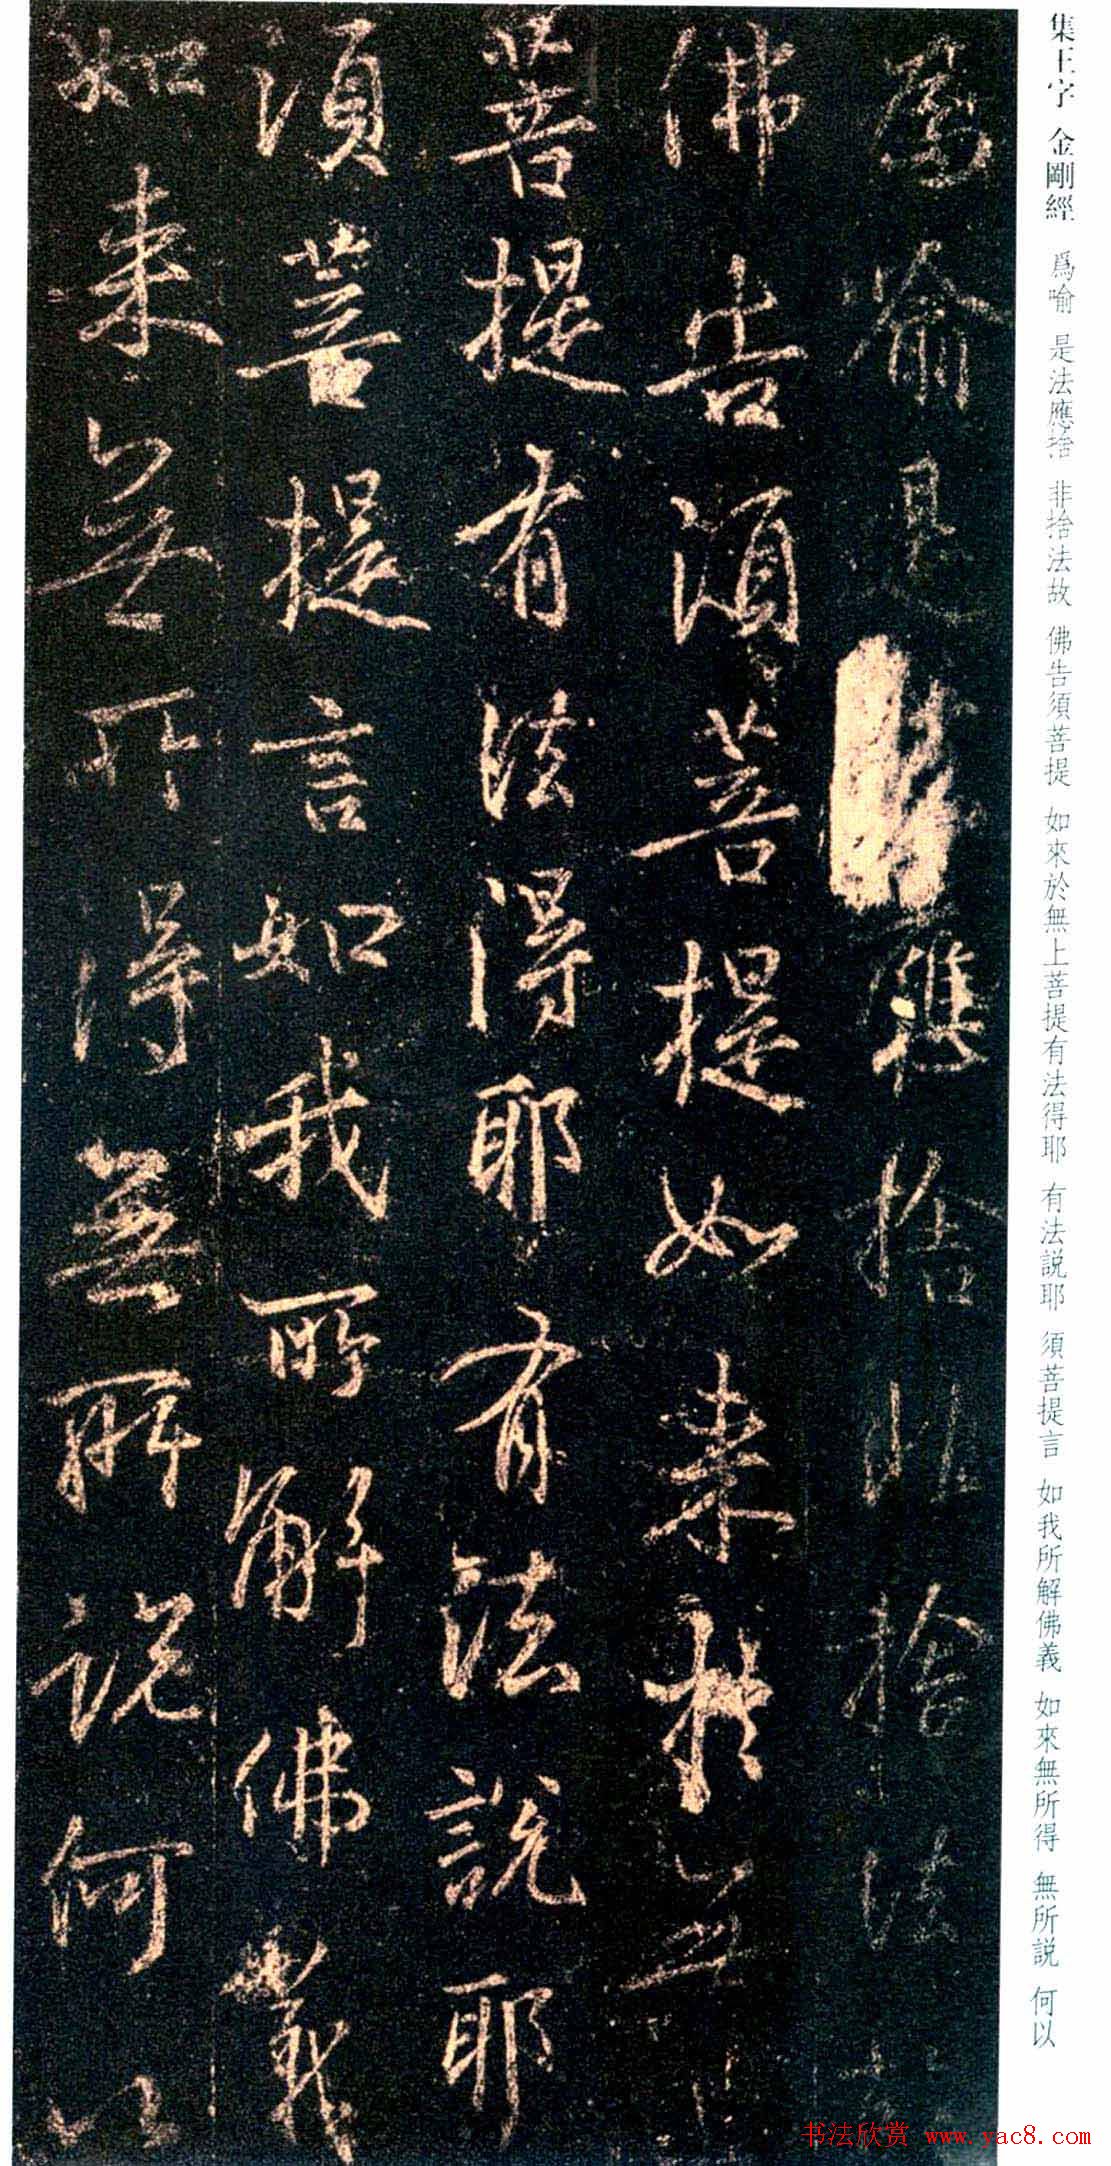 集王字 金剛經 爲喻 是法應捨 非捨法故 佛告須菩提 如來於無上菩提有法得耶 有法説耶 須菩提言 如我所解佛義 如來無所得 無所説 何以
為喻是應捨非捨法故
佛告須菩提如來於無上
菩提有法得耶有法說耶
須菩提言如我所解佛義
如來無所得無所說何以
书法欣赏 www.yac8.com